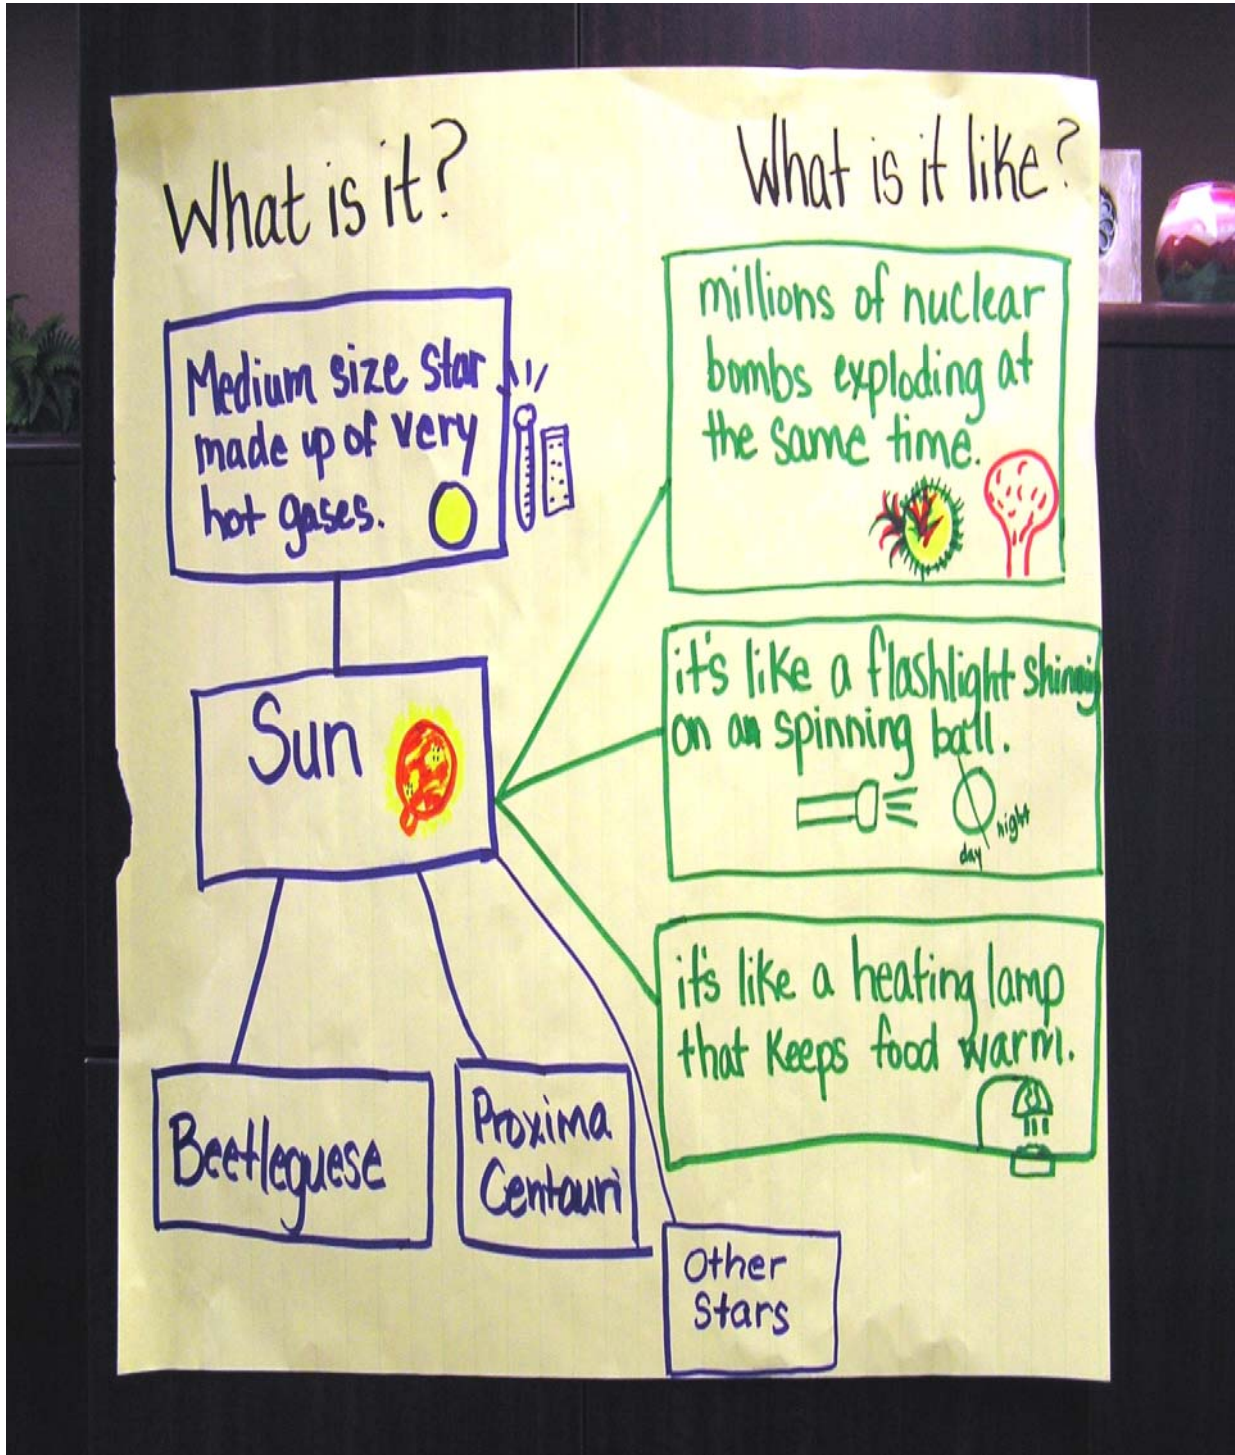 What is it?
What is it like?
Medium size star
made up of very
hot gases.
Sun
Beetleguese
Proxima
Centauri
Other
Stars
millions of nuclear
bombs exploding at
the same time.
it's like a flashlight shining
on an spinning ball.
night
day
it's like a heating lamp
that keeps food warm.